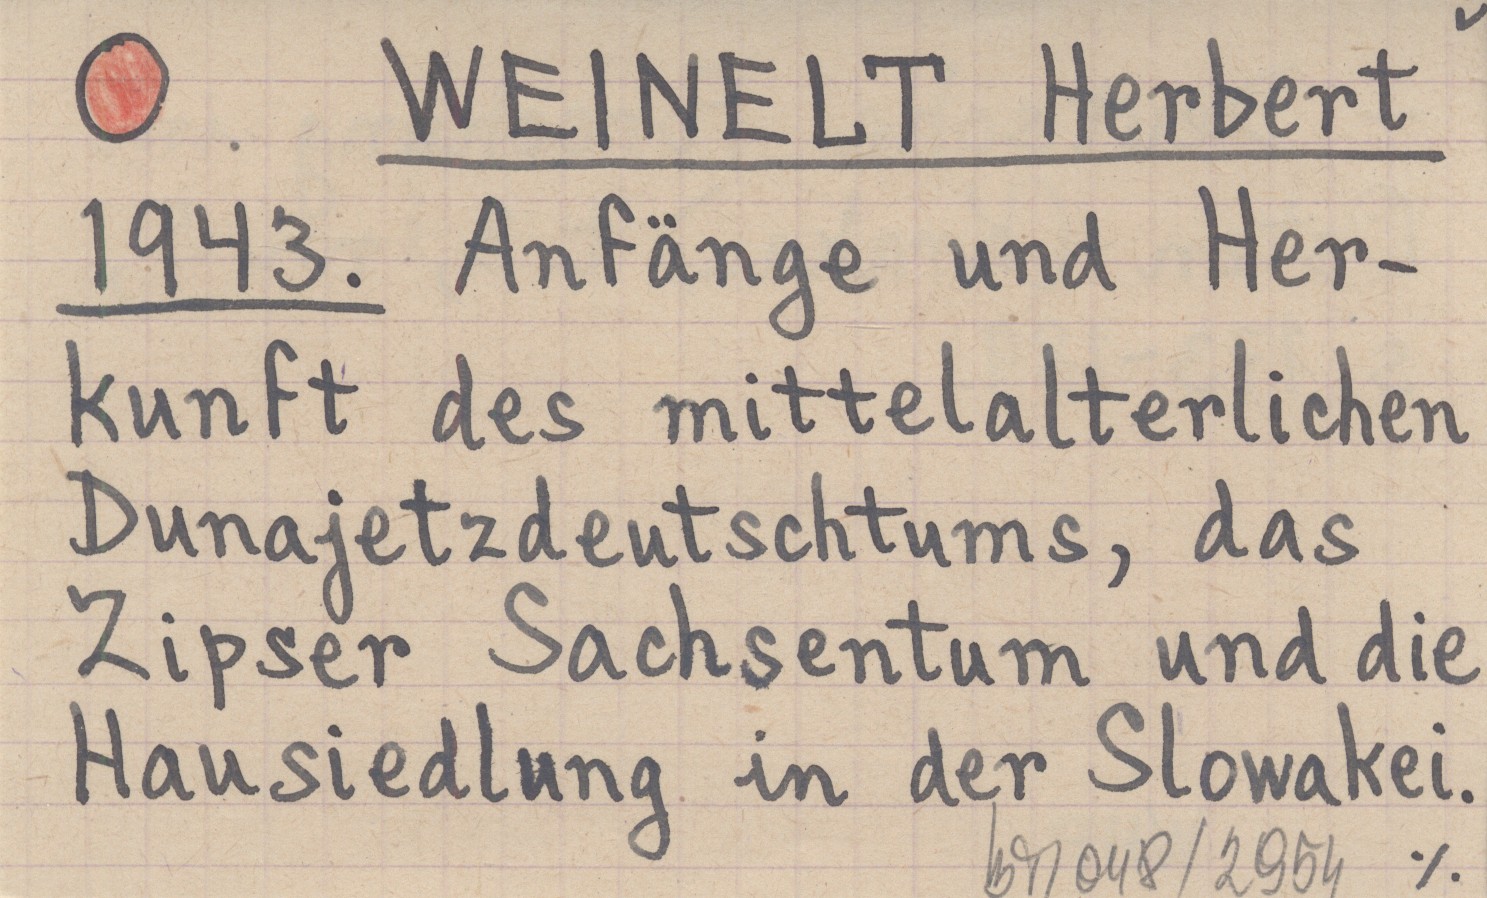 WEINELT Herbert
1943. Anfänge und Her-
kunft des mittelalterlichen
Dunajetzdeutschtums, das
Zipser Sachsentum und die
Hausiedlung in der Slowakei.
048/2954 ·/.